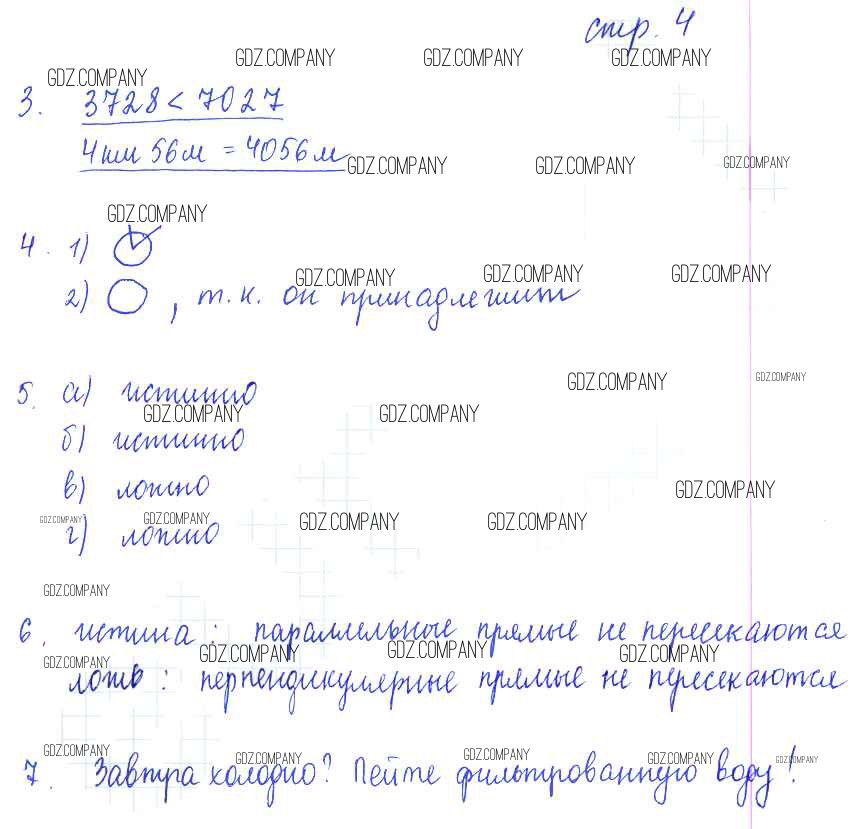 стр. 4
GDZ.COMPANY GDZ.COMPANY GDZ.COMPANY
GDZ.COMPANY
3. 3728 < 7027
4 км 56 м = 4056 м
GDZ.COMPANY GDZ.COMPANY GDZ.COMPANY
GDZ.COMPANY
4. 1)
GDZ.COMPANY GDZ.COMPANY GDZ.COMPANY
2) , т.к. он принадлежит
GDZ.COMPANY GDZ.COMPANY
5. а) истинно
GDZ.COMPANY GDZ.COMPANY
б) истинно
в) ложно
GDZ.COMPANY
GDZ.COMPANY GDZ.COMPANY GDZ.COMPANY GDZ.COMPANY
г) ложно
GDZ.COMPANY
6. истина: параллельные прямые не пересекаются
GDZ.COMPANY GDZ.COMPANY GDZ.COMPANY GDZ.COMPANY
ложь: перпендикулярные прямые не пересекаются
GDZ.COMPANY GDZ.COMPANY GDZ.COMPANY GDZ.COMPANY GDZ.COMPANY
7. Завтра холодно? Пейте фильтрованную воду!